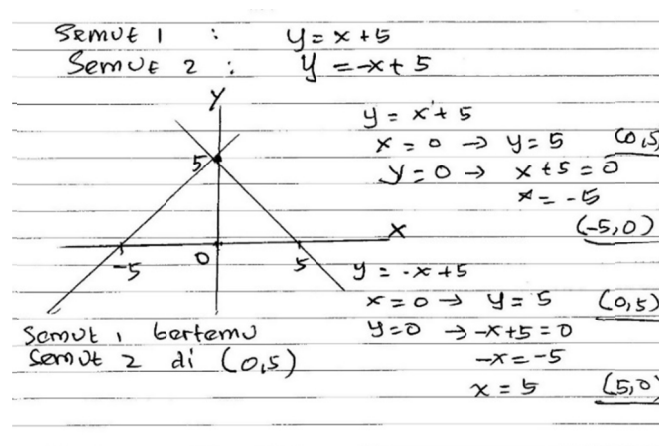 Semut 1 : y = x + 5
Semut 2 : y = -x + 5
y = x + 5
x = 0 → y = 5 (0,5)
y = 0 → x + 5 = 0
x = -5
(-5,0)
Y
5
X
-5
0
5
y = -x + 5
x = 0 → y = 5 (0,5)
y = 0 → -x + 5 = 0
-x = -5
x = 5 (5,0)
Semut 1 bertemu
Semut 2 di (0,5)